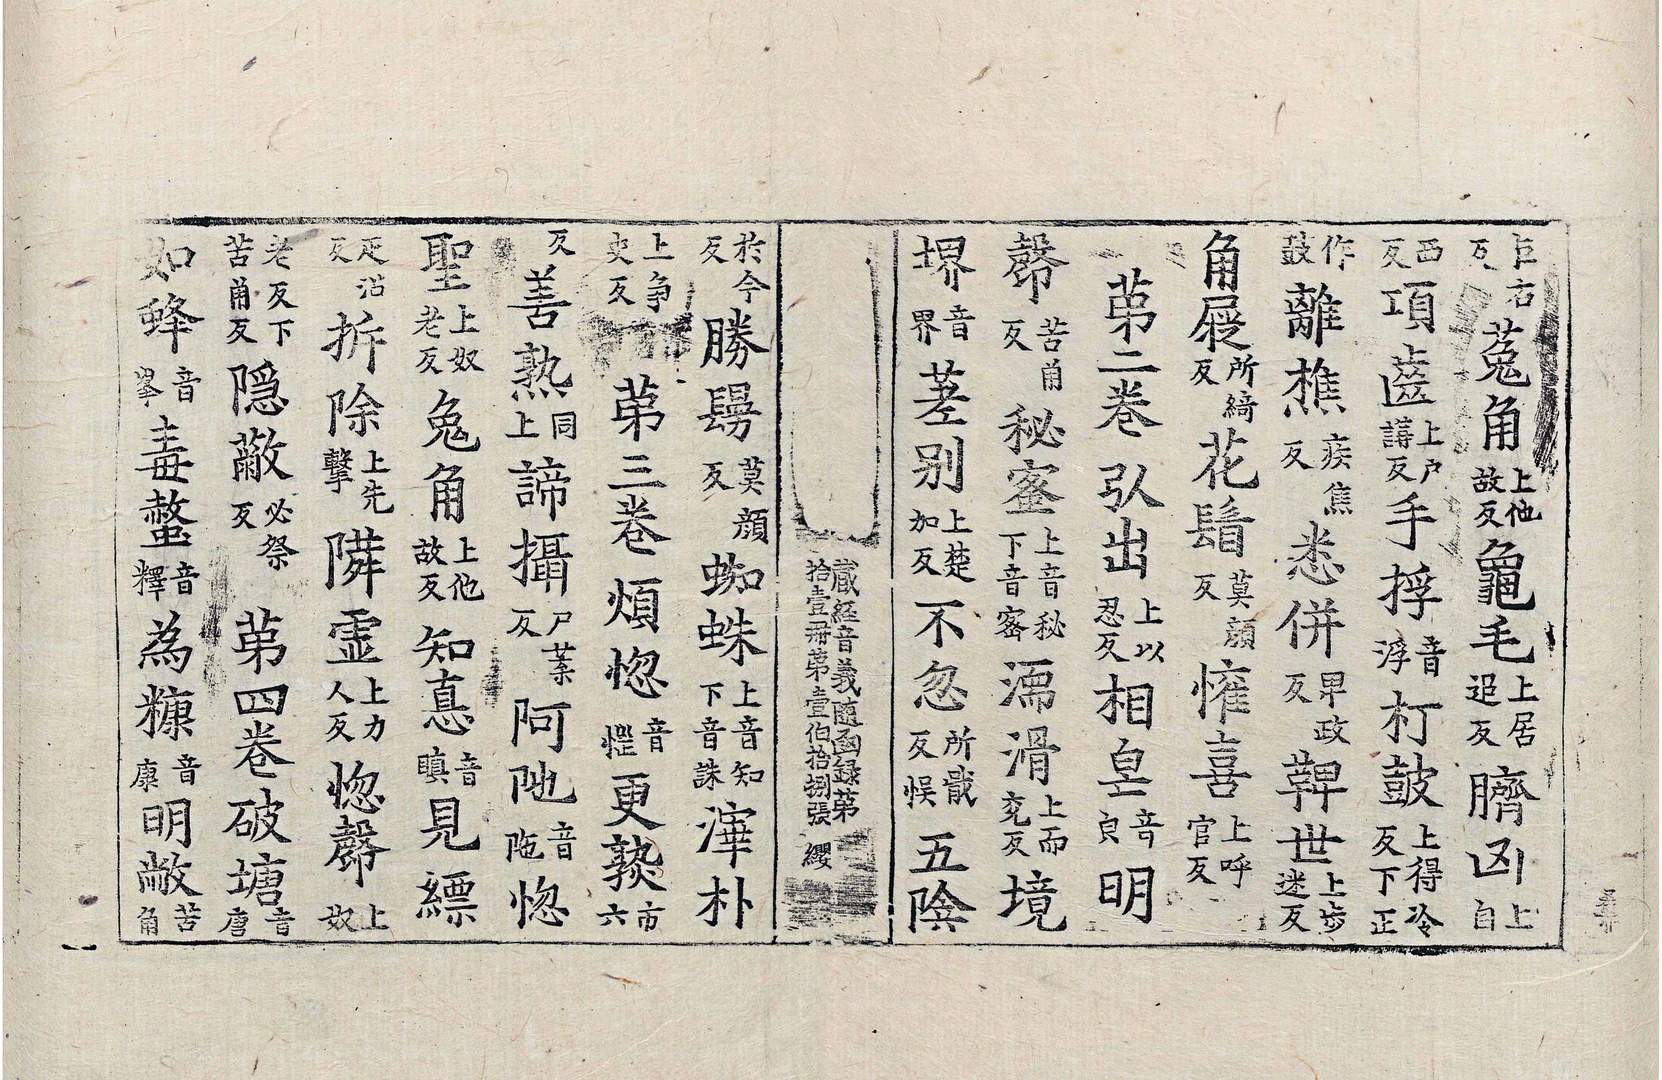 巨右反菟角上他故反龜毛上居追反臍凶上自
西反項齒上戶講反手捊音浮朾鼓上得冷反下正
作鼓離樵疾焦反悉併畀政反鞞世上步迷反
角屣所綺反花鬘莫顔反懽喜上呼官反
苐二卷引出上以忍反相皃音皃明
㲉苦角反秘𡨋上音秘下音宻濡滑上而兖反境
堺音界差别上楚加反不忽所戢反悮五隂
藏經音義隨函録苐拾壹冊苐壹伯拾捌張纓
扵今反勝鬘莫顔反蜘蛛上音知下音誅滓朴
上爭史反苐三卷煩惚音惱更𭶑市六
反善𤍠同上諦攝尸葉反阿陁音陁惚
聖上奴老反兔角上他故反知嗔音瞋見縹
疋沼反拆除上先擊反隣虛上力人反惚㲉上奴
老反下苦角反隠蔽必祭反苐四卷破塘音唐
如蜂音峯毒螫音釋為糠音康明㪣苦角